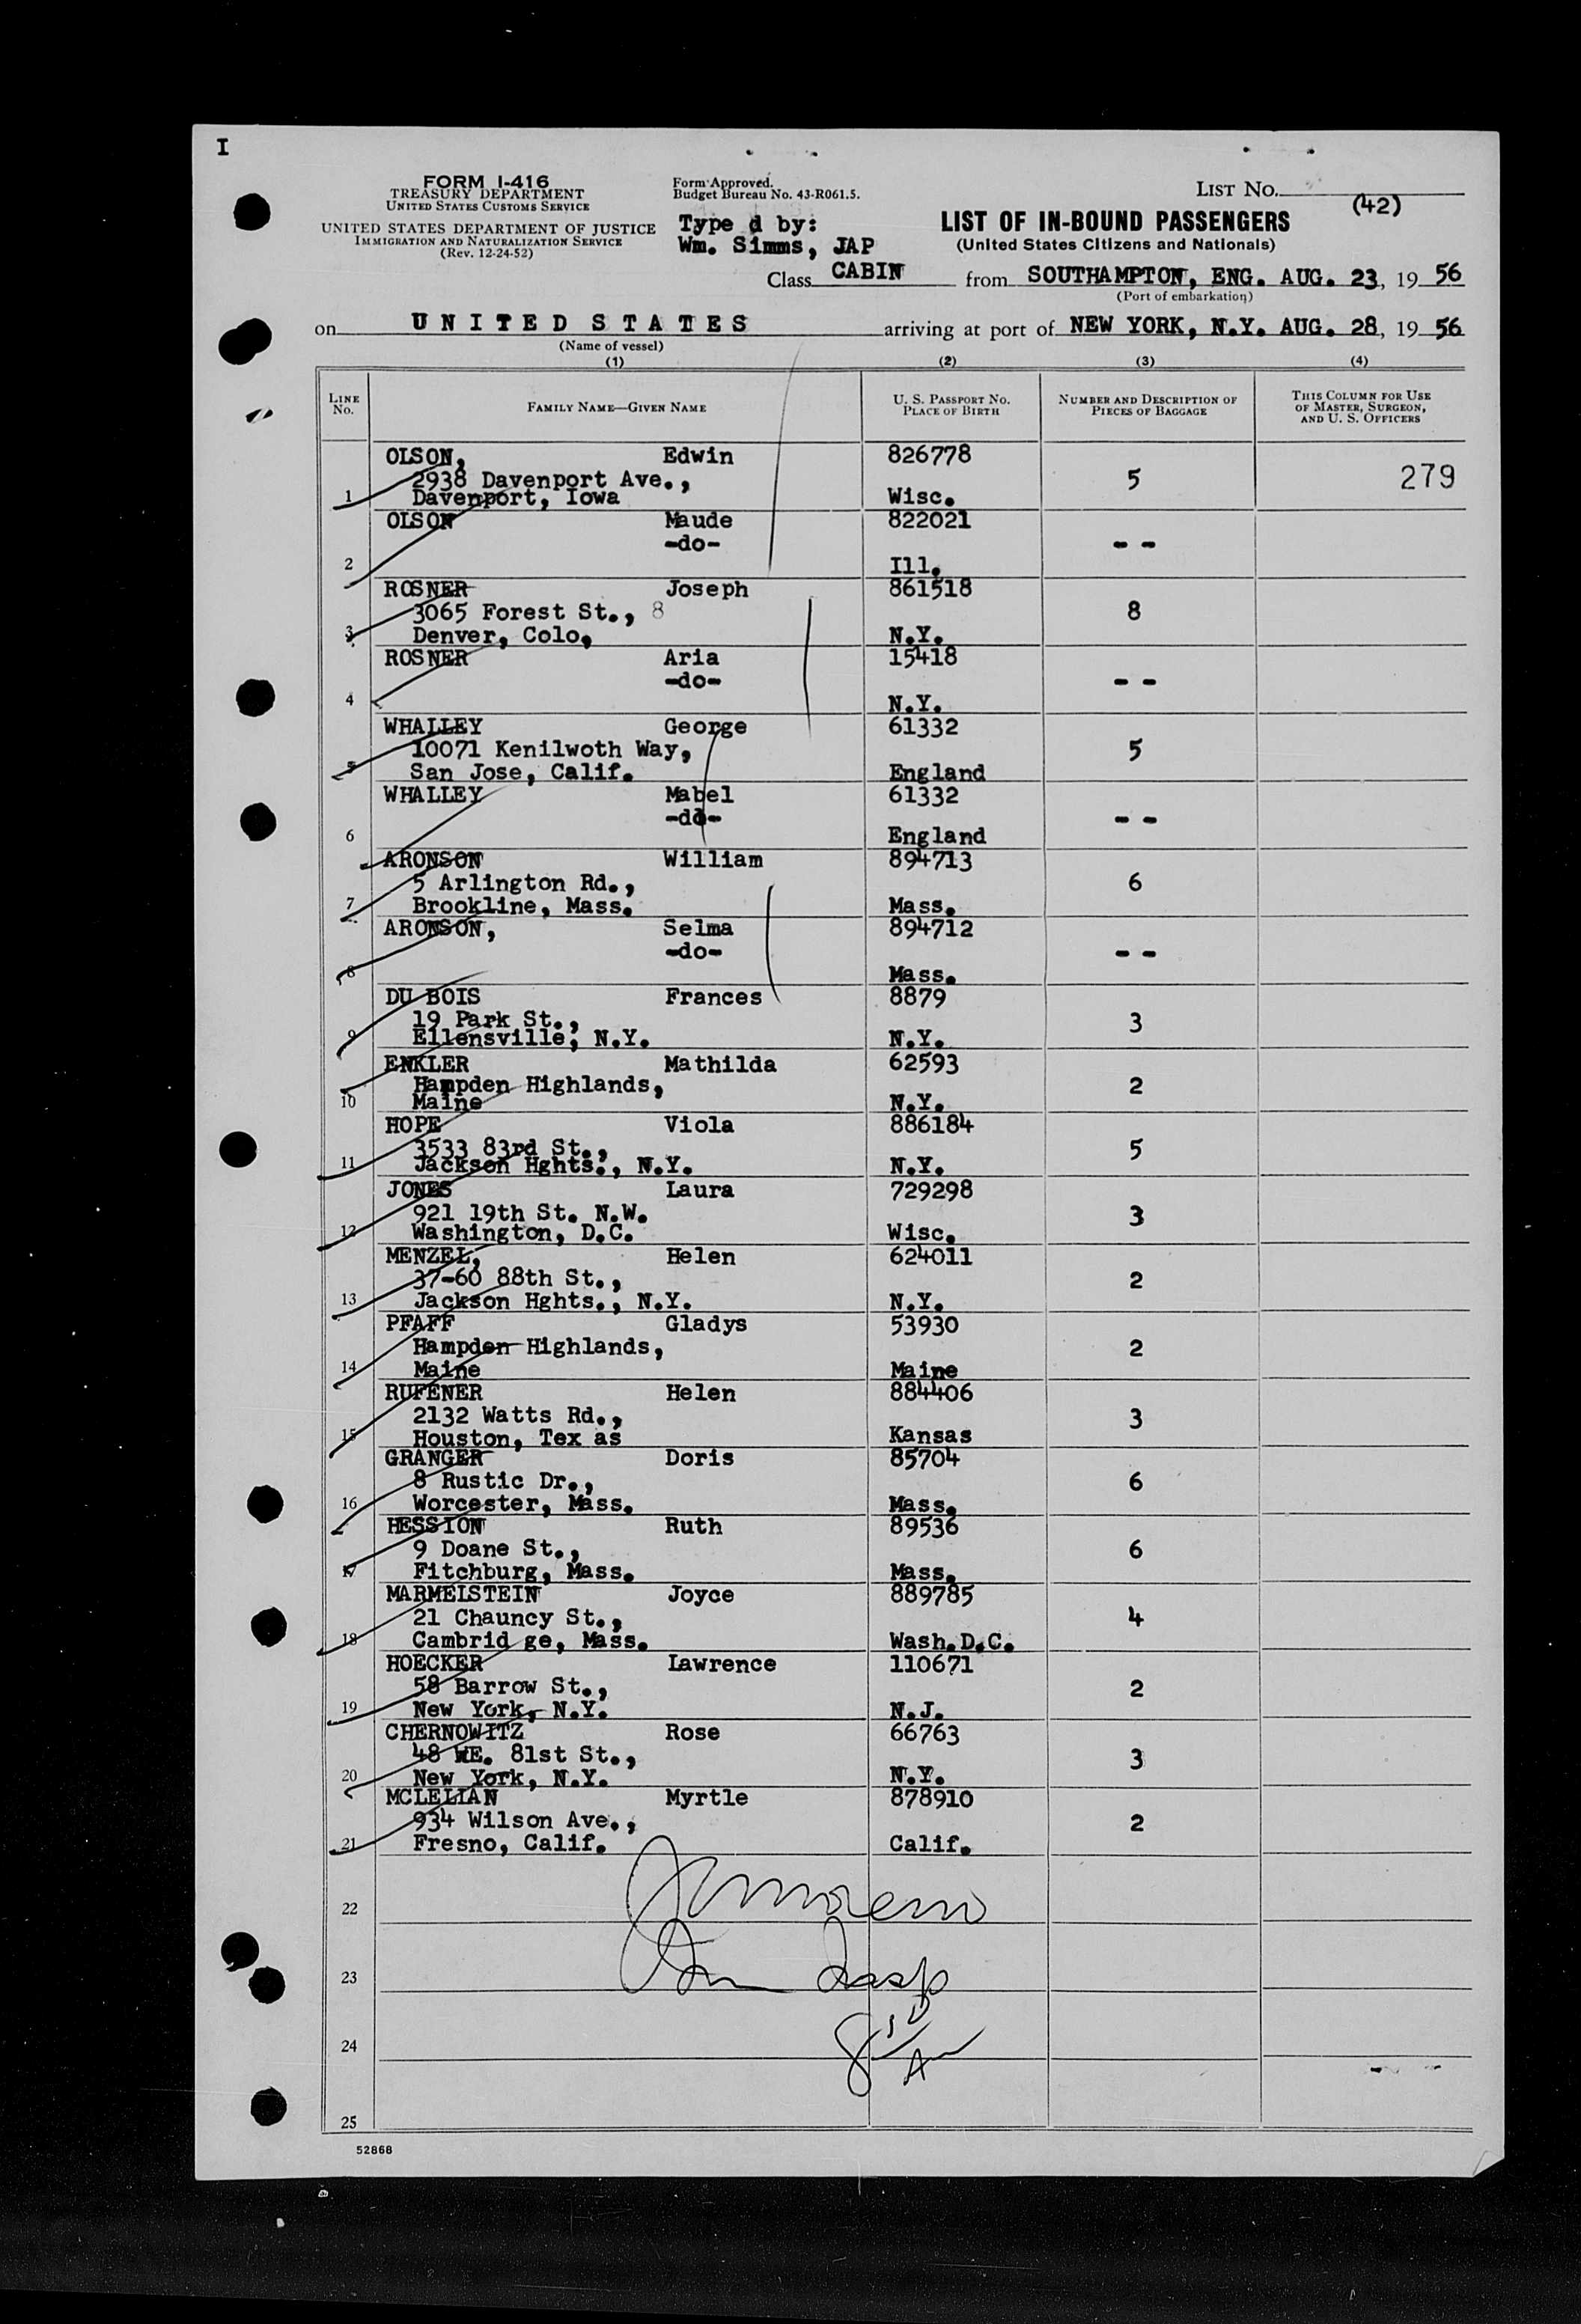 I
FORM I-416
TREASURY DEPARTMENT
UNITED STATES CUSTOMS SERVICE
UNITED STATES DEPARTMENT OF JUSTICE
IMMIGRATION AND NATURALIZATION SERVICE
(Rev. 12-24-52)
Form Approved.
Budget Bureau No. 43-R061.5.
Type d by:
Wm. Simms, JAP
LIST NO.
(42)
LIST OF IN-BOUND PASSENGERS
(United States Citizens and Nationals)
Class CABIN from SOUTHAMPTON, ENG. AUG. 23, 19 56
(Port of embarkation)
on UNITED STATES arriving at port of NEW YORK, N.Y. AUG. 28, 19 56
(Name of vessel)
(1) (2) (3) (4)
LINE NO. FAMILY NAME—GIVEN NAME U. S. PASSPORT NO. PLACE OF BIRTH NUMBER AND DESCRIPTION OF PIECES OF BAGGAGE THIS COLUMN FOR USE OF MASTER, SURGEON, AND U. S. OFFICERS
OLSON, Edwin 826778
2938 Davenport Ave., 5 279
1 Davenport, Iowa Wisc.
OLSON Maude 822021
-do- - -
2 Ill.
ROSNER Joseph 861518
3065 Forest St., 8 8
3 Denver, Colo, N.Y.
ROSNER Aria 15418
-do- - -
4 N.Y.
WHALLEY George 61332
10071 Kenilwoth Way, 5
5 San Jose, Calif. England
WHALLEY Mabel 61332
-do- - -
6 England
ARONSON William 894713
5 Arlington Rd., 6
7 Brookline, Mass. Mass.
ARONSON, Selma 894712
-do- - -
8 Mass.
DU BOIS Frances 8879
19 Park St., 3
9 Ellensville, N.Y. N.Y.
ENKLER Mathilda 62593
Hampden Highlands, 2
10 Maine N.Y.
HOPE Viola 886184
3533 83rd St., 5
11 Jackson Hghts., N.Y. N.Y.
JONES Laura 729298
921 19th St. N.W. 3
12 Washington, D.C. Wisc.
MENZEL, Helen 624011
37-60 88th St., 2
13 Jackson Hghts., N.Y. N.Y.
PFAFF Gladys 53930
Hampden Highlands, 2
14 Maine Maine
RUFENER Helen 884406
2132 Watts Rd., 3
15 Houston, Tex as Kansas
GRANGER Doris 85704
8 Rustic Dr., 6
16 Worcester, Mass. Mass.
HESSION Ruth 89536
9 Doane St., 6
17 Fitchburg, Mass. Mass.
MARMELSTEIN Joyce 889785
21 Chauncy St., 4
18 Cambrid ge, Mass. Wash.D.C.
HOECKER Lawrence 110671
58 Barrow St., 2
19 New York, N.Y. N.J.
CHERNOWITZ Rose 66763
48 WE. 81st St., 3
20 New York, N.Y. N.Y.
MCLELLAN Myrtle 878910
934 Wilson Ave., 2
21 Fresno, Calif. Calif.
22
23
24
25
52868